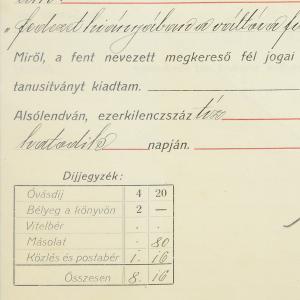 „fedezet hiányában a váltó a fi
Miről, a fent nevezett megkereső fél jogai
tanusitványt kiadtam.
Alsólendván, ezerkilenczszáz tíz
hatodik napján.
Dijjegyzék:
Óvásdij 4 20
Bélyeg a könyvön 2 —
Vitelbér . .
Másolat . 80
Közlés és postabér 1. 16
Összesen 8. 16